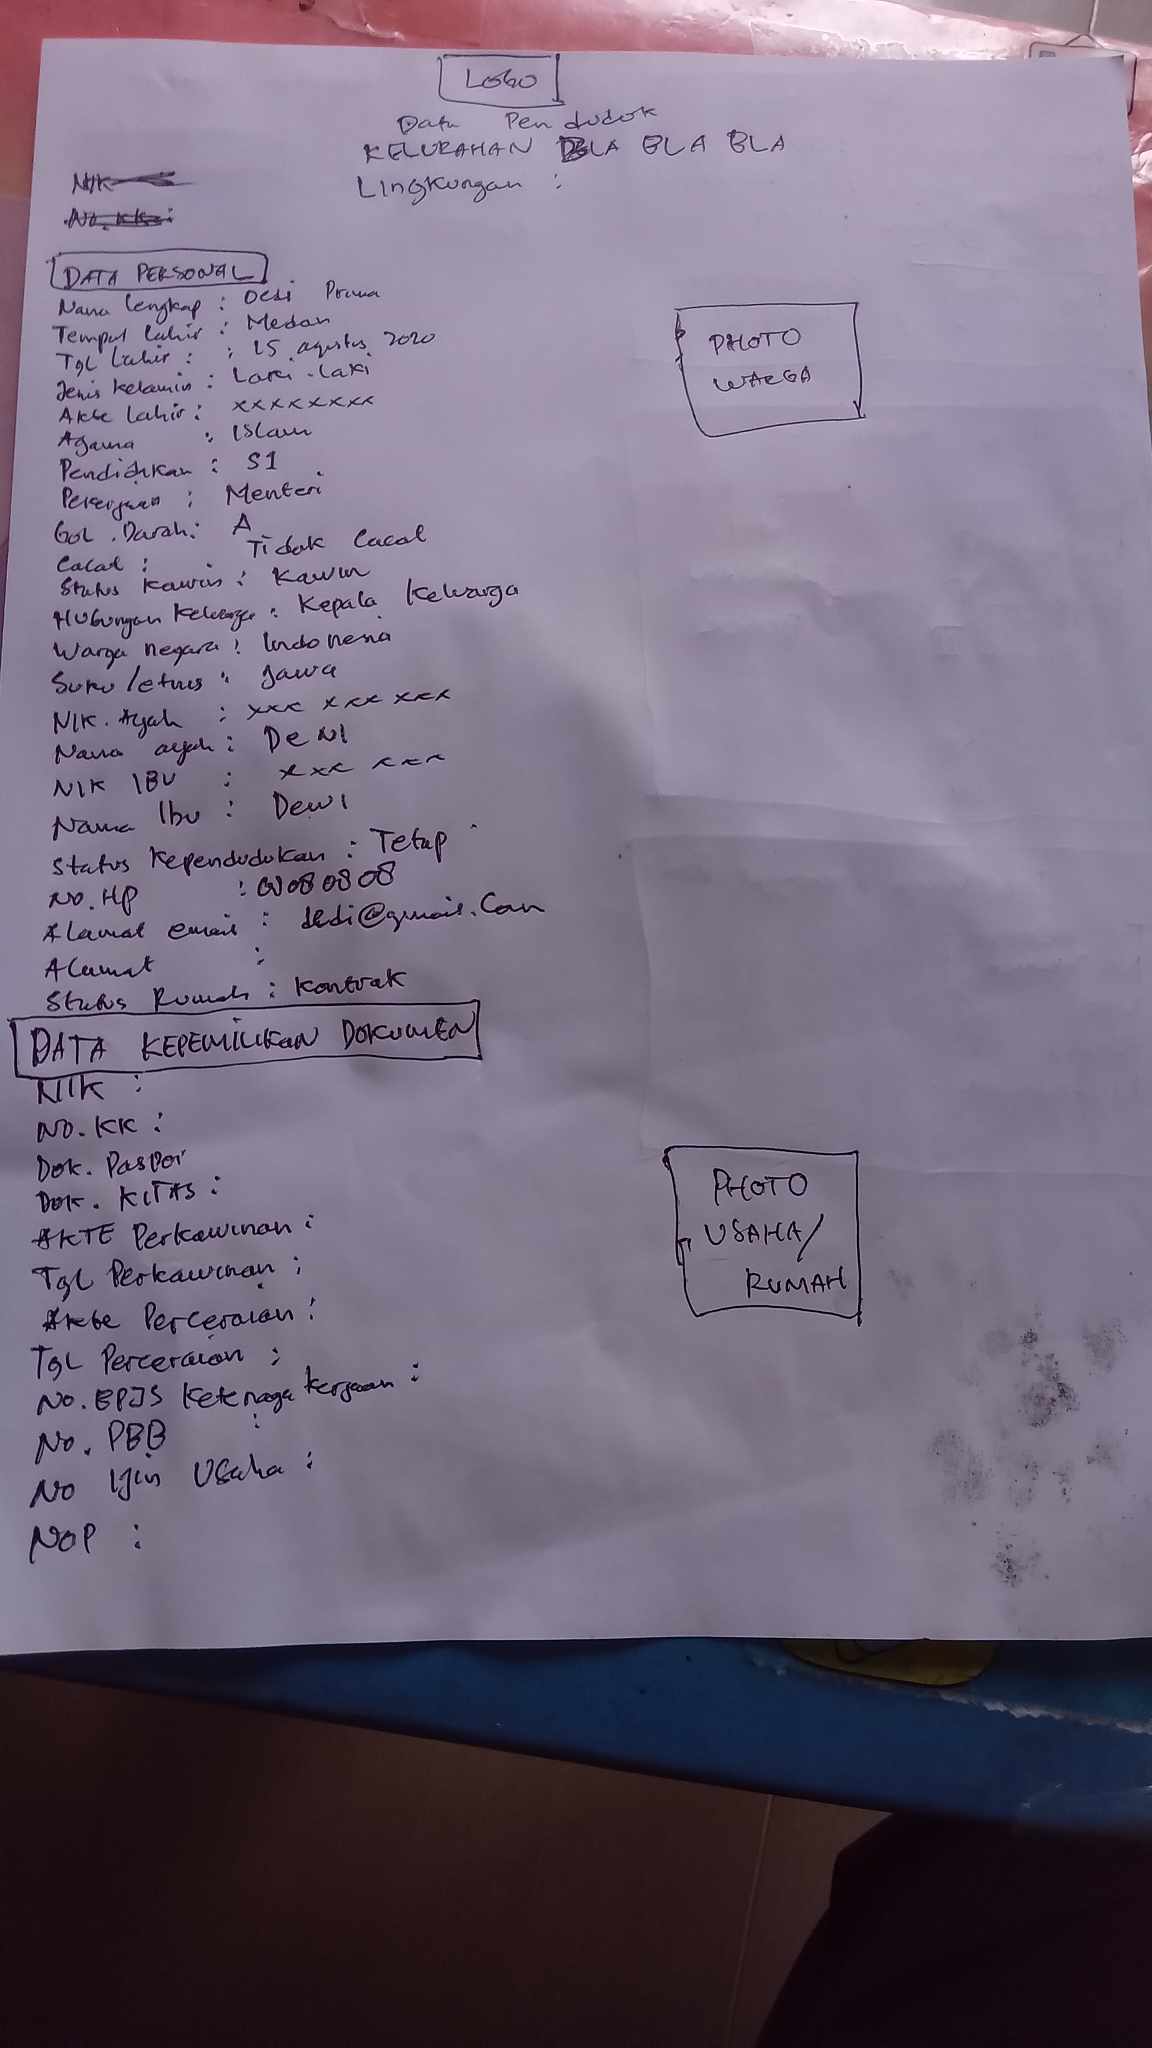 LOGO
Data Penduduk
KELURAHAN BLA BLA BLA
Lingkungan :
NIK
No. KK :
DATA PERSONAL
Nama lengkap : Dedi Prama
Tempat lahir : Medan
Tgl Lahir : : 15 agustus 2020
Jenis kelamin : Laki-laki
Akte Lahir : xxxxxxxx
Agama : Islam
Pendidikan : S1
Pekerjaan : Menteri
Gol. Darah : A
Cacat : Tidak Cacat
Status Kawin : Kawin
Hubungan keluarga : Kepala Keluarga
Warga negara : Indonesia
Suku/etnis : Jawa
NIK. Ayah : xxx xxx xxx
Nama ayah : DeNI
NIK IBU : xxx xxx
Nama Ibu : Dewi
Status Kependudukan : Tetap
No. Hp : 08080808
Alamat email : dedi@gmail.Com
Alamat :
Status Rumah : Kontrak
PHOTO
WARGA
DATA KEPEMILIKAN DOKUMEN
NIK :
No. KK :
Dok. Paspor
Dok. KITAS :
AKTE Perkawinan :
Tgl Perkawinan :
Akte Perceraian :
Tgl Perceraian :
No. BPJS Ketenagakerjaan :
No. PBB :
No Ijin Usaha :
NOP :
PHOTO
USAHA/
RUMAH